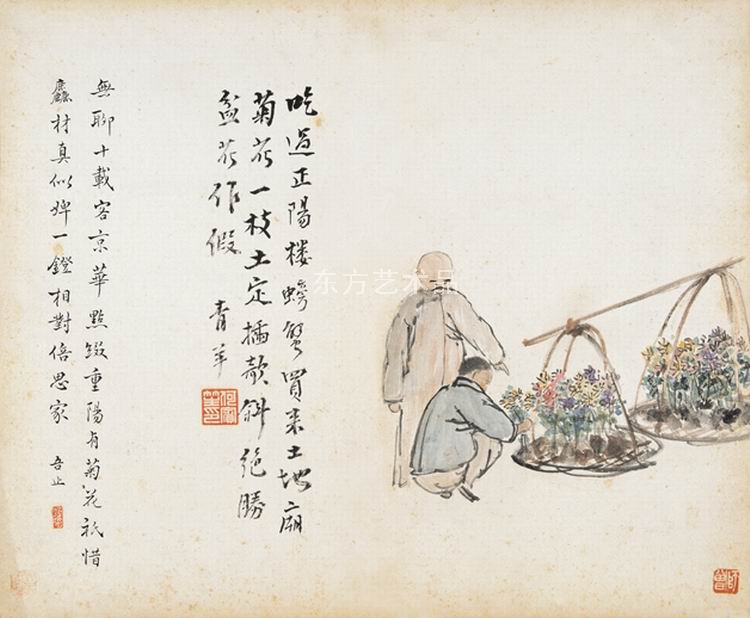 吃過正陽楼螃蟹買来土地廟
菊花一枝土定插欹斜絶勝
盆花作假 青羊
無聊十載客京華點綴重陽有菊花祇惜
麤材真似婢一鐙相對倍思家 吾止
东方艺术品
師曾